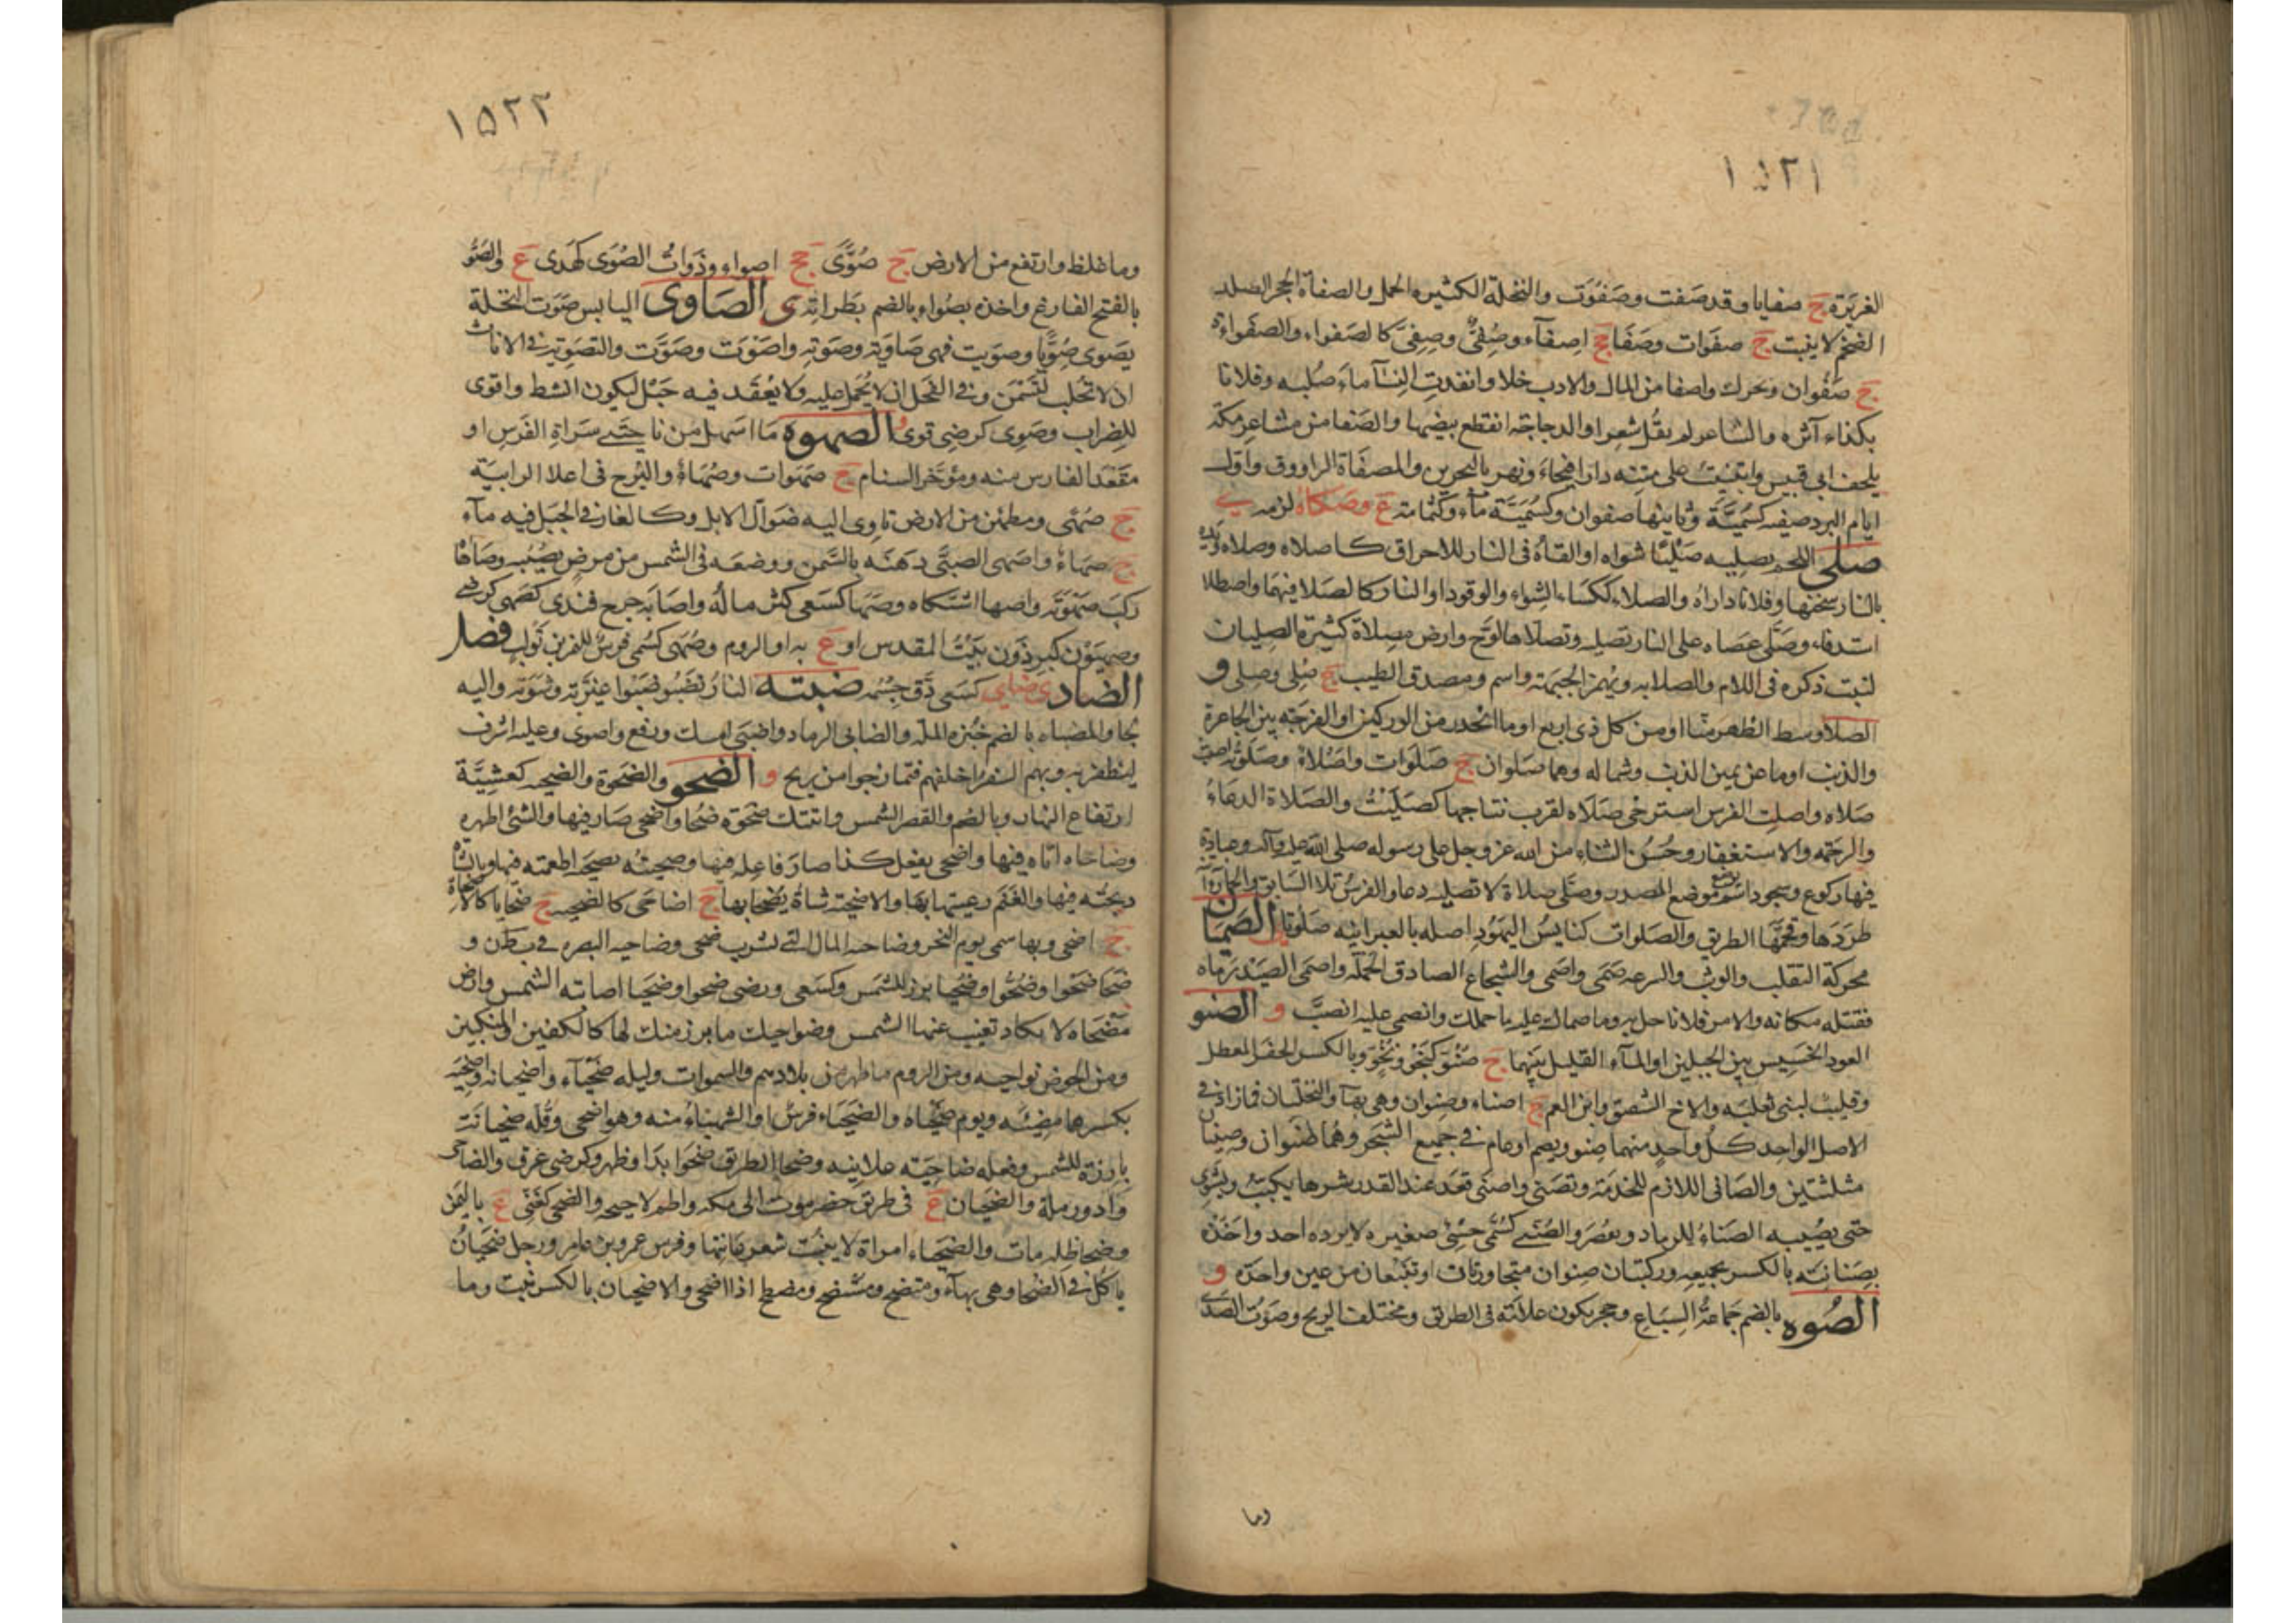 ١٥٢١
الغزيرة ج صفايا وقد صفت وصَفُوَت والنخلة الكثيرة الحمل والصفاة الحجر الصلد
الضخم لا ينبت ج صفوات وصفا جج اصفاء وصُفِىٌّ وصِفِىٌّ كالصفواء والصفواءة
ج صَفْوان ويحرك واصفا من المال والادب خلا وانفدت النساء ماء صُلبه وفلانا
بكذاء آثره والشاعر لم يقُل شعرا والدجاجة انقطع بيضها والصفا من مشاعر مكة
بلحف ابي قبيس وابتنيت على متنه دارا فيحاء ونهر بالبحرين والمصفاة الراووق واول
ايام البرد صفيه كسُمَيَّة وثانيها صفوان وكسُمَيَّة ماء وكثمامة ع وصكاه لزمه ي
صلى اللحم يصليه صَلْيًا شواه او القاه في النار للاحراق كاصلاه وصلاه ويده
بالنار سخنها وفلانا داراه والصلاء ككساء الشواء والوقود او النار كالصلا فيهما واصطلا
استدفاء وصَلَّى عصاه على النار تصليه وتصلاها لوّح وارض مصلاة كثيرة الصليان
لنبت ذكره في اللام والصلايه ويُهمز الجبهة واسم ومدق الطيب ج صُلِى وصِلِى و
الصلا وسط الظهر منا او من كل ذي اربع او ما انحدر من الوركين او الفرجة بين الجاعرة
والذنب او ما عن يمين الذنب وشماله وهما صلوان ج صَلَوات واصلاء وصلوته اصبت
صلاه واصلت الفرس استرخى صلاه لقرب نتاجها كصَلِيَتْ والصلاة الدعاء
والرحمة والاستغفار وحُسن الثناء من الله عز وجل على رسوله صلى الله عليه وآله وعبادة
فيها ركوع وسجود اسم يوضع موضع المصدر وصَلّى صلاة لا تصليه دعا والفرسُ تلا السابق والحمارُ اُ
طرَدَها وقحمها الطريق والصلوات كنايس اليهود اصله بالعبرانيه صلوتا ي الصَمَيان
محركة التقلب والوثب والسرعه صَمَى واصمى والشجاع الصادق الحملة واصمى الصيد رماه
فقتله مكانه والامر فلانا حل به وما صماك عليه ما حملك وانصمى عليه انصبّ و الصنو
العود الخسيس بين الجبلين او الماء القليل بينهما ج صُنُوّ كنَحْو ونُحُوّ وبالكسر الحفر المعطل
وقليب لبني ثعلبه والاخ الشقيق وابن العم ج اصناء وصنوان وهي بهاء والنخلتان فما زاد في
الاصل الواحد كل واحد منهما صِنو ويضم او عام في جميع الشجر وهُما صُنوان وصِنيان
مثلثتين والصانى اللازم للخدمة وتصنى واصنى قعد عند القدر شرها يكبب ويشوي
حتى يصيبه الصناءُ للرماد ويقصر والصُنَىّ كسُمَىّ حِسْىٌ صغير لا يرده احد واخذه
بصنانيته بالكسر بجميعه وركيتان صنوان متجاورتان او تنبعان من عين واحدة و
الصُوه بالضم جماعةُ السباع وحجر يكون علامة في الطريق ومختلف الريح وصوت الصَدَى
وما
١٥٢٢
وما غلظ وارتفع من الارض ج صُوًى جج اصواء وذوات الصُوَى كهُدى ع والصَوُّ
بالفتح الفارغ واخذه بصُواه وبالضم بطراته ى الصاوى اليابس صَوَت النخلة
يصوى صُوِيًّا وصويت فهى صاوية وصوته واصوت وصَوّت والتصويه في الاناث
ان لا تُحلب لتسمن وفي الفحل ان لا يُحمل عليه ولا يُعقد فيه حبل ليكون انشط واقوى
للضراب وصَوِى كرضى قوى و الصهوه ما اسهل من ناحيتى سراة الفرس او
مقعد الفارس منه ومؤخر السنام ج صهوات وصُهاءُ والبرج فى اعلا الرابية
ج صُهًى ومطمئن من الارض تاوى اليه ضوالّ الابل وكالغار في الجبل فيه ماء
ج صهاءُ واصهى الصبىّ دهنه بالسمن ووضعه في الشمس من مرض يصيبه وصاهاه
ركب صهوته واصها اشتكاه وصَها كسَعى كثر ماله واصابه جرح فندى كصَهِى كرضى
وصِهيون كبرذون بيت المقدس او ع به او الروم وصُهى كسُمى فرس للنمر بن تولب فصل
الضاد ى ضاى كسعى دَقَّ جسمه ضبته النارُ تضبُو ضَبْوا غيّرته وشوته واليه
لجا والمضباه بالضم خبزه الملّه والضابى الرماد واضبى امسك ورفع واضوى وعليه اشرف
ليظفر به وبهم السفرُ اخلفهم فيما رجوا من ربح و الضحو والضحوة والضحيه كعشيّة
ارتفاع النهار وبالضم والقصر الشمس واتيتك ضحوة ضُحا واضحى صار فيها والشئ اظهره
وضاحاه اتاه فيها واضحى يفعل كذا صار فاعله فيها وضحيته تضحيه اطعمته فيها وبالشاة
ذبحته فيها والغنم رعيتها بها والاضحية شاةٌ يضحى بها ج اضاحى كالضحيه ج ضحايا كالاضحاة
ج اضحى وبها سمى يوم النحر وضاحيه المال التي تشرب ضحى وضاحيه البصره في بطن و
ضحَا ضَحْوا وضُحُوّا وضُحِيا برز للشمس وكسَعى ورضى ضحوا وضحيا اصابته الشمس وارض
مضحاه لا يكاد تغيب عنها الشمس وضواحيك ما برز منك لها كالكتفين والمنكبين
ومن الحوض نواحيه ومن الروم ما ظهر من بلادهم والسموات وليله ضحياء واضحيانه واضحيه
بكسرهما مضيئه ويوم ضحياه والضحياء فرس او الشهباء منه وهو اضحى وقُله ضحيانة
بارزة للشمس وفعله ضاحيته علانيه وضحا الطريق ضحوا بدا وظهر وكرضى عرق والضاحى
وادٍ ورملة والضحيان ع فى طريق حضرموت الى مكه واطم لاحيحه والضحى كغنى ع باليمن
وضحا ظله مات والضحياء امراة لا ينبت شعر عانتها وفرس عمرو بن عامر ورجل ضحيان
ياكل في الضحا وهى بهاء ومتضح ومستضح ومضطح اذا اضحى والاضحيان بالكسر نبت وما